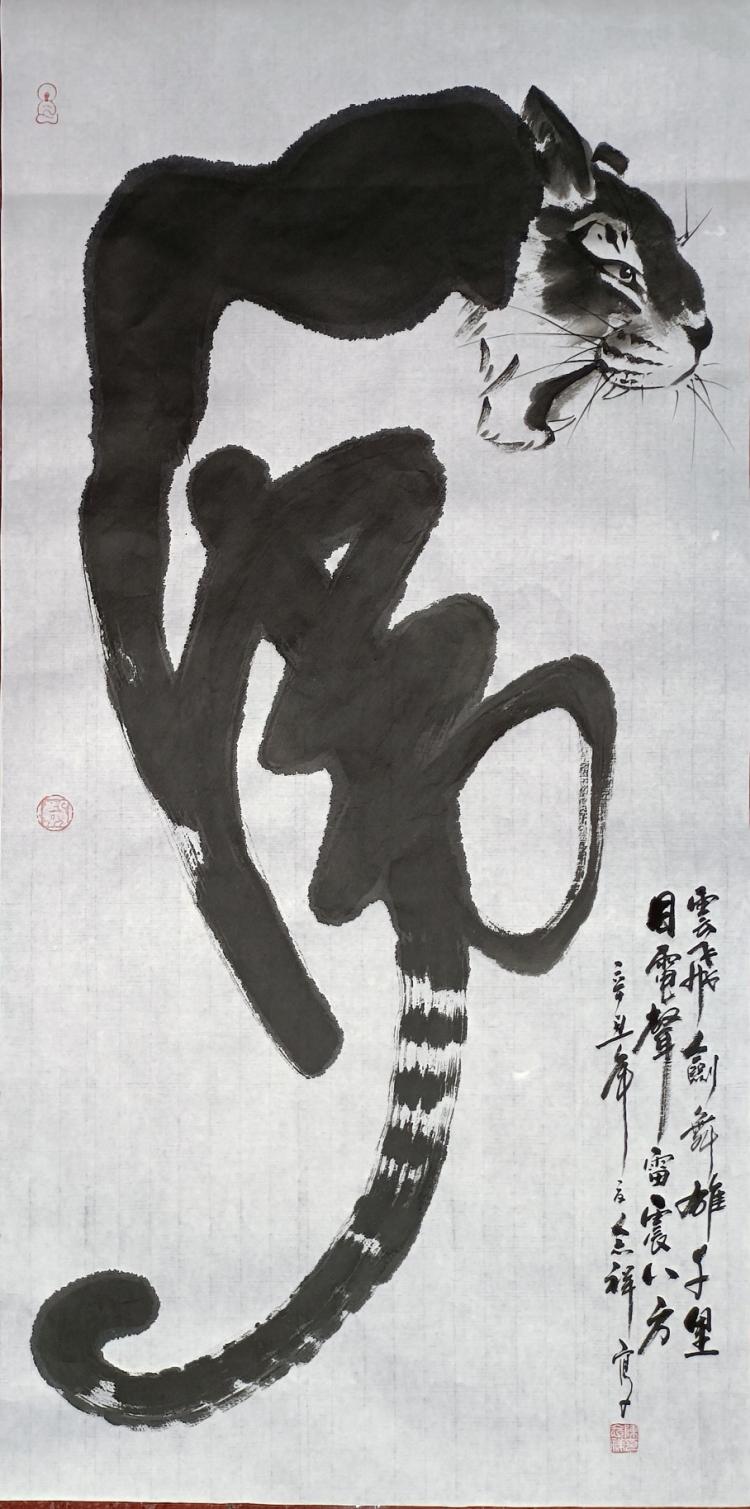 虎
雲飛劍舞雄千里
目電聲雷震八方
辛丑年夏念祥寫